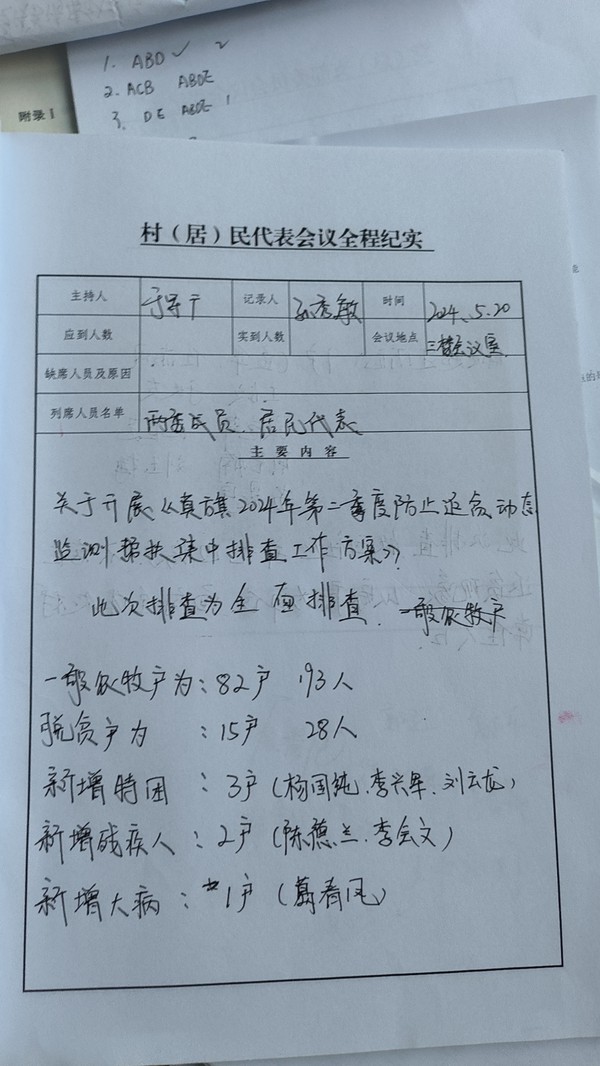 1. ABD ✓ 2
2. ACB ABDE
3. DE ABDE 1
附录 I
村（居）民代表会议全程纪实
主持人 记录人 孙秀敏 时间 2024.5.20
应到人数 实到人数 会议地点 三楼会议室
缺席人员及原因
列席人员名单 两委成员、居民代表
主要内容
关于开展《真旗2024年第二季度防止返贫动态
监测帮扶集中排查工作方案》
此次排查为全面排查. 一般农牧户
一般农牧户为：82户 193人
脱贫户为：15户 28人
新增特困：3户（杨国纯.李兴军.刘云龙）
新增残疾人：2户（陈德兰.李会文）
新增大病：1户（葛春凤）